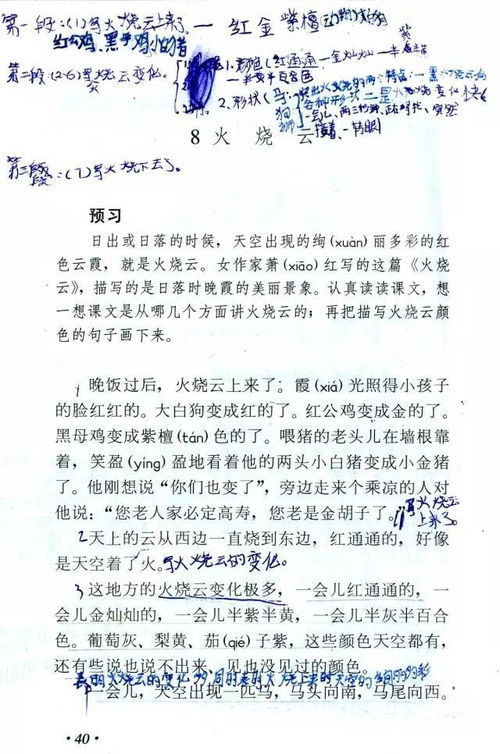 第一段:(1)写火烧云上来了。一 红 金 紫檀
红公鸡,黑母鸡,小白猪
第二段(2-6)写火烧云变化。
1.颜色(红通通一金灿灿一半紫半黄
半灰半百合色
2.形状(马:
狗
狮
8 火 烧 云
接着、一转眼
第三段:(7)写火烧云下去了。
预习
日出或日落的时候,天空出现的绚(xuàn)丽多彩的红
色云霞,就是火烧云。女作家萧(xiāo)红写的这篇《火烧
云》,描写的是日落时晚霞的美丽景象。认真读读课文,想
一想课文是从哪几个方面讲火烧云的;再把描写火烧云颜
色的句子画下来。
1 晚饭过后,火烧云上来了。霞(xiá)光照得小孩子
的脸红红的。大白狗变成红的了。红公鸡变成金的了。
黑母鸡变成紫檀(tán)色的了。喂猪的老头儿在墙根靠
着,笑盈(yíng)盈地看着他的两头小白猪变成小金猪
了。他刚想说“你们也变了”,旁边走来个乘凉的人对
他说:“您老人家必定高寿,您老是金胡子了。”写火烧云
上来了。
2天上的云从西边一直烧到东边,红通通的,好像
是天空着了火。写火烧云的变化。
3这地方的火烧云变化极多,一会儿红通通的,一
会儿金灿灿的,一会儿半紫半黄,一会儿半灰半百合
色。葡萄灰、梨黄、茄(qié)子紫,这些颜色天空都有,
还有些说也说不出来、见也没见过的颜色。
一会儿,天空出现一匹马,马头向南,马尾向西。
·40·